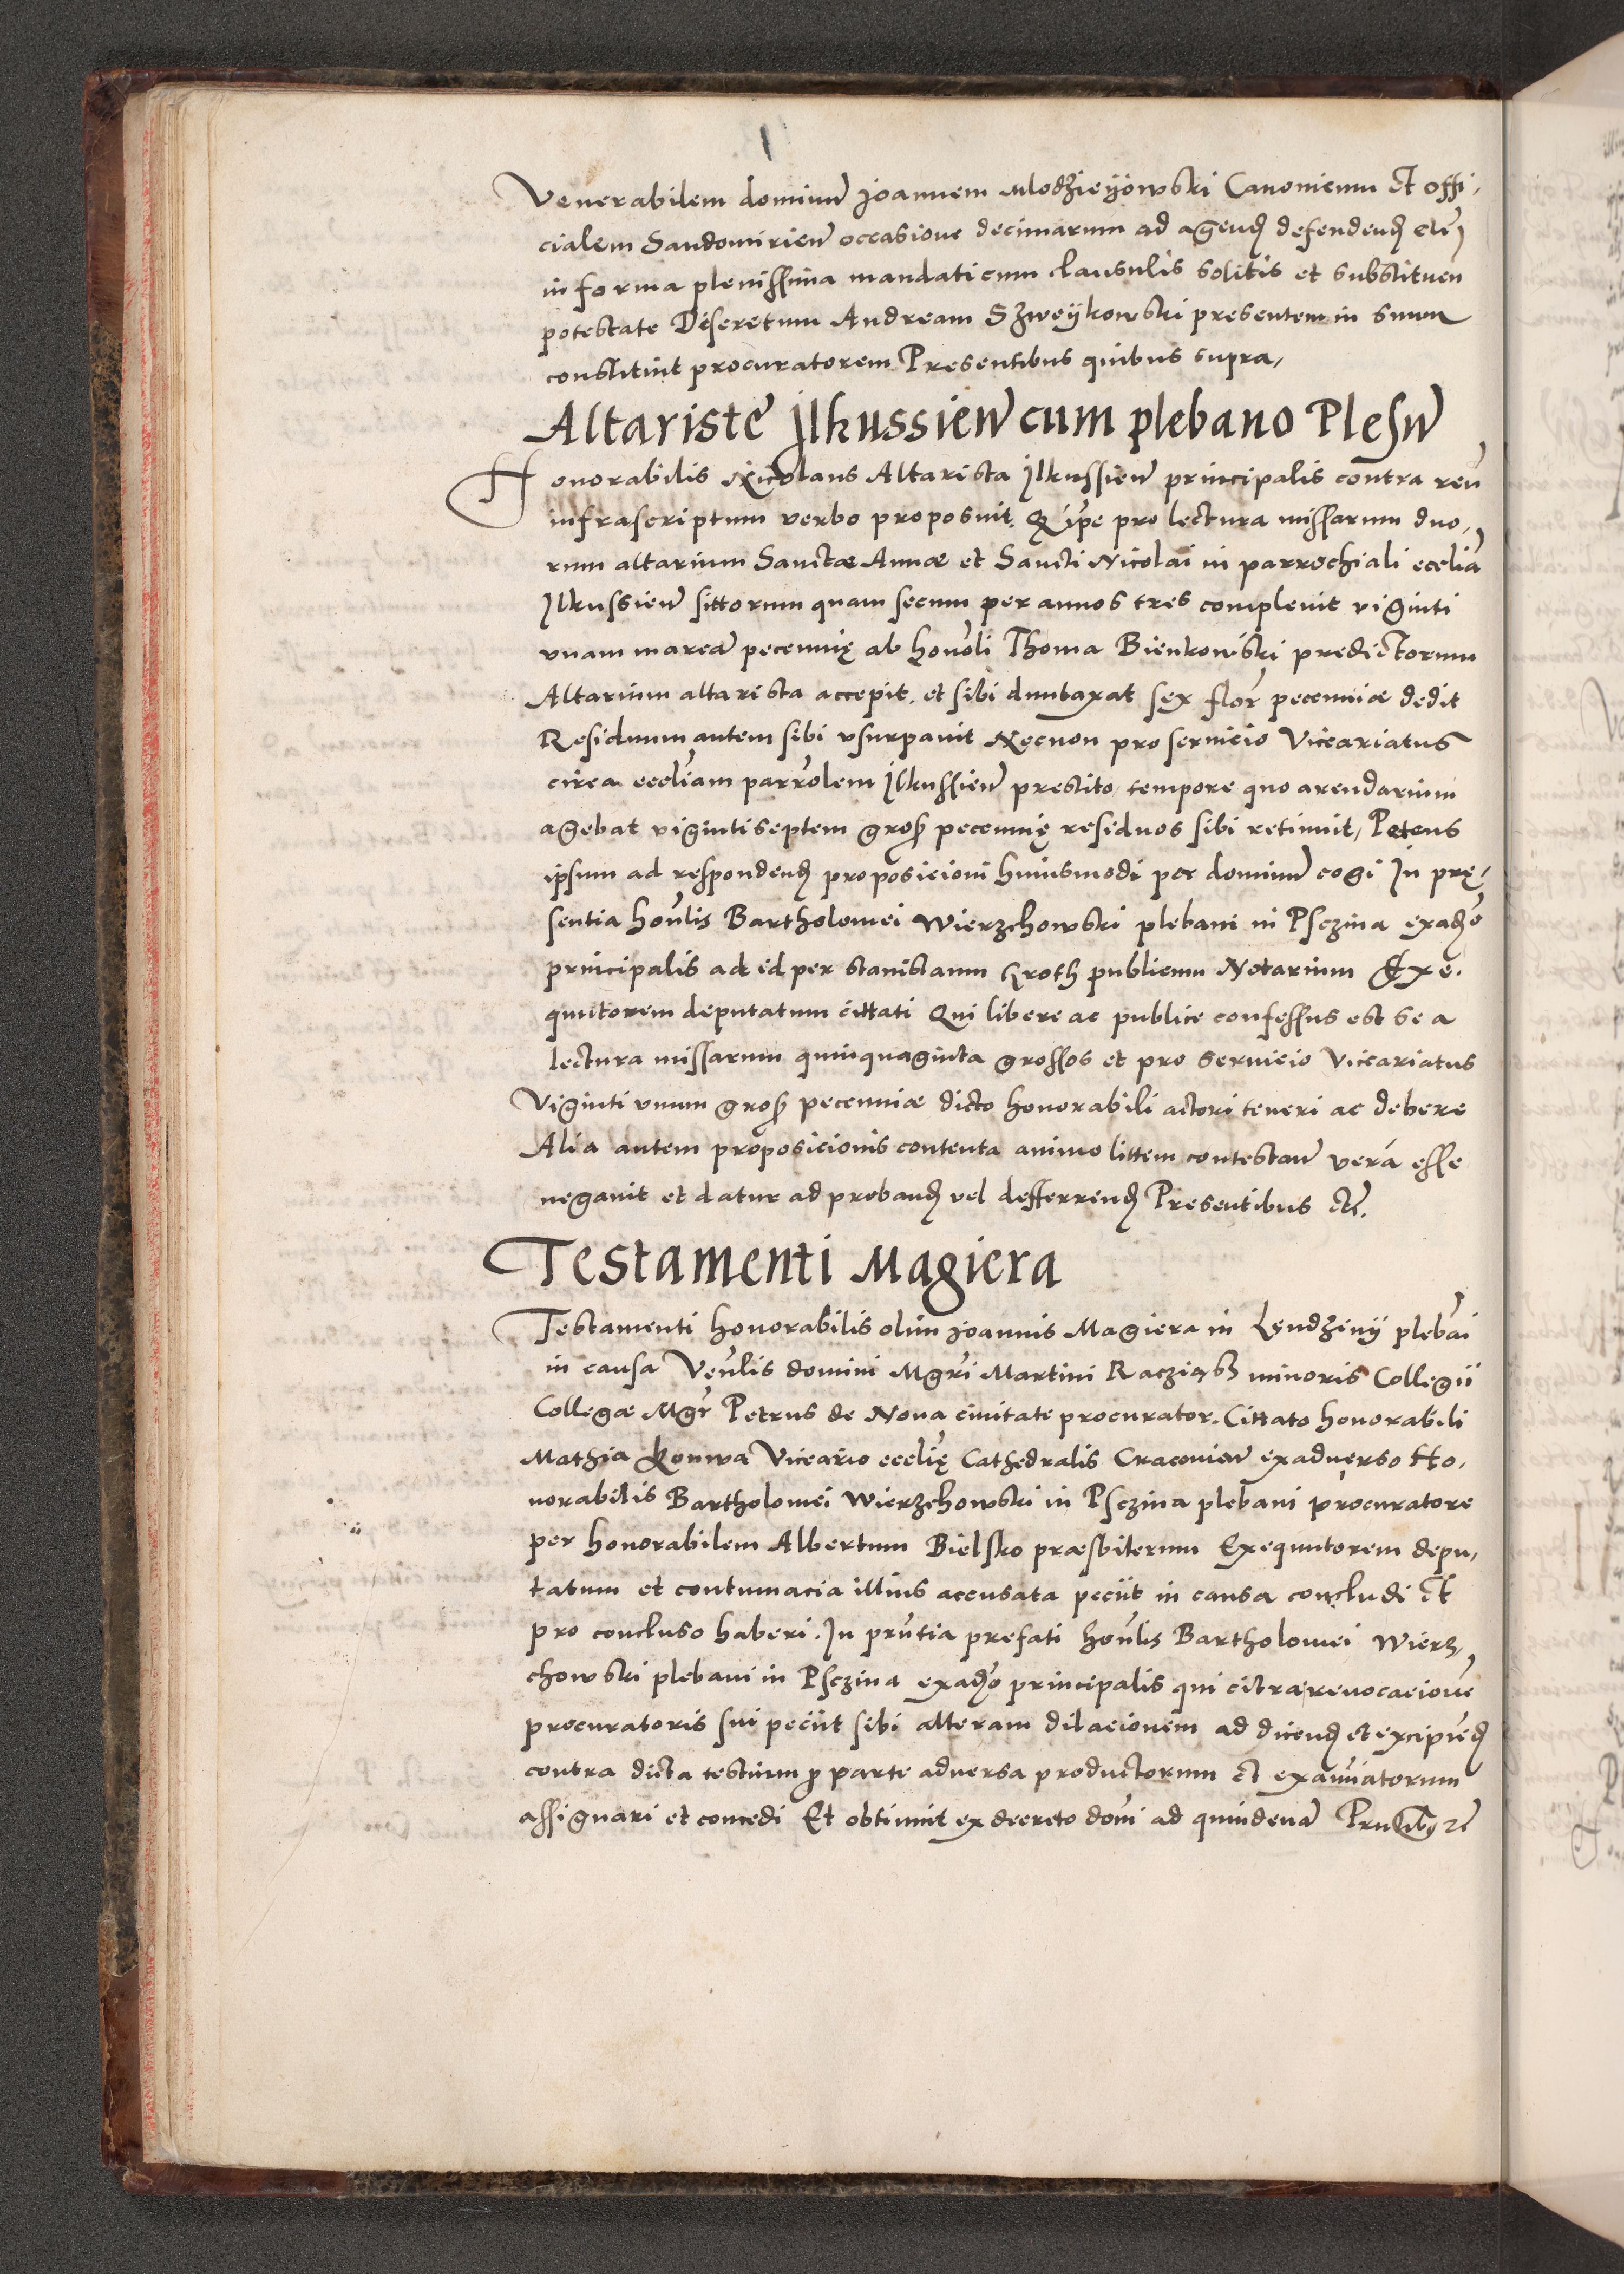 Venerabilem dominū Joannem Mlodzieyowski Canonicum et offi,
cialem Sandomirien̄ occasione decimarum ad agend defendend cum
in forma plenissima mandati cum clausulis solitis et substituen
potestate Discretum Andream Szweykowski presentem in suum
constituit procuratorem Presentibus quibus supra,
Altariste Jlkussien̄ cum plebano Plesn̄
Honorabilis Nicolaus Altarista Jlkussien̄ principalis contra reū
infrascriptum verbo proposuit. Q ipē pro lectura missarum duo,
rum altarium Sanctæ Annæ et Sancti Nicolai in parrochiali ecclīa
Jlkussien̄ sittorum quam secum per annos tres complevit viginti
vnam marcā pecunnię ab honōli Thoma Bienkowski predictorum
Altarium altarista accepit. et sibi duntaxat sex flor̄ pecunniæ dedit
Residuum autem sibi vsurpauit Necnon pro seruicio Viccariatus
circa ecclīam parrōlem Jlkussien̄ prestito tempore quo arendarium
agebat vigintiseptem gross pecunnię residuos sibi retinuit, Petens
ipsum ad respondend proposicioni huiusmodi per dominū cogi In prę,
sentia honōlis Bartholomei Wierzchowski plebani in Psczina exadūo
principalis ad id per Stanislaum Kroth publicum Notarium Exe.
quutorem deputatum cittati Qui libere ac publice confessus est se a
lectura missarum quinquaginta grossos et pro seruicio Viccariatus
Viginti vnum gross pecunniæ dicto honorabili actori teneri ac debere
Alia autem proposicionis contenta animo littem contestan̄ vera esse
negauit et datur ad proband vel defferrend Presentibus etc̄.
Testamenti Magiera
Testamenti honorabilis olim Joannis Magiera in Lendziny plebāi
in causa Venlis domini Mgri Martini minoris Collegii
Collegæ Mgr̄ Petrus de Noua ciuitate procurator. Cittato honorabili
Mathia Konwa Viccario ecclię Cathedralis Cracouien̄ exaduerso Ho,
norabilis Bartholomei Wierzchowski in Psczina plebani procuratore
per honorabilem Albertum Bielsko præsbiterum Exequutorem depu,
tatum et contumacia illius accusata peciit in causa concludi et
pro concluso haberi. In prn̄tia prefati honlis Bartholomei Wierz,
chowski plebani in Psczina exadūo principalis qui citra reuocacionē
procuratoris sui peciit sibi alteram dilacionem ad dicend et excipiēd
contra dicta testium p parte aduersa productorum et examiatorum
assignari et concedi Et obtinuit ex decreto domī ad quindenā